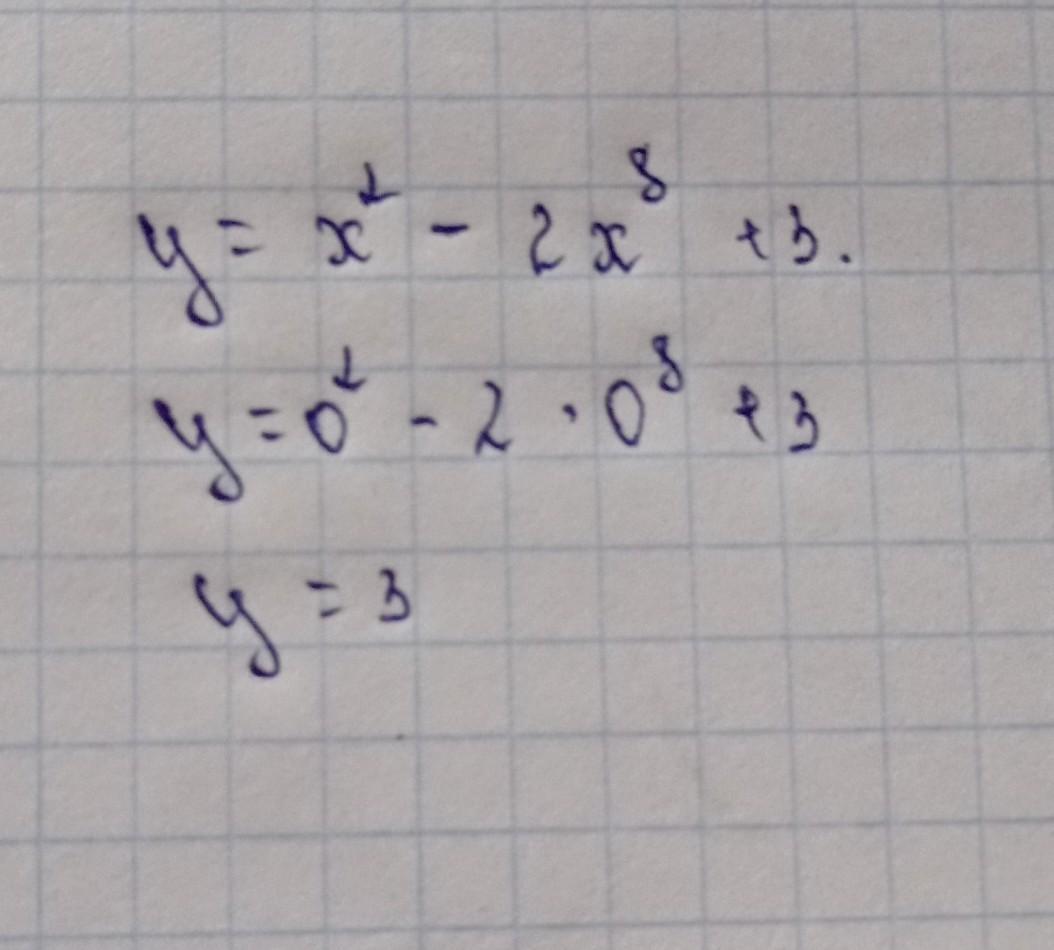 y = x² - 2x⁸ + 3.
y = 0² - 2 · 0⁸ + 3
y = 3